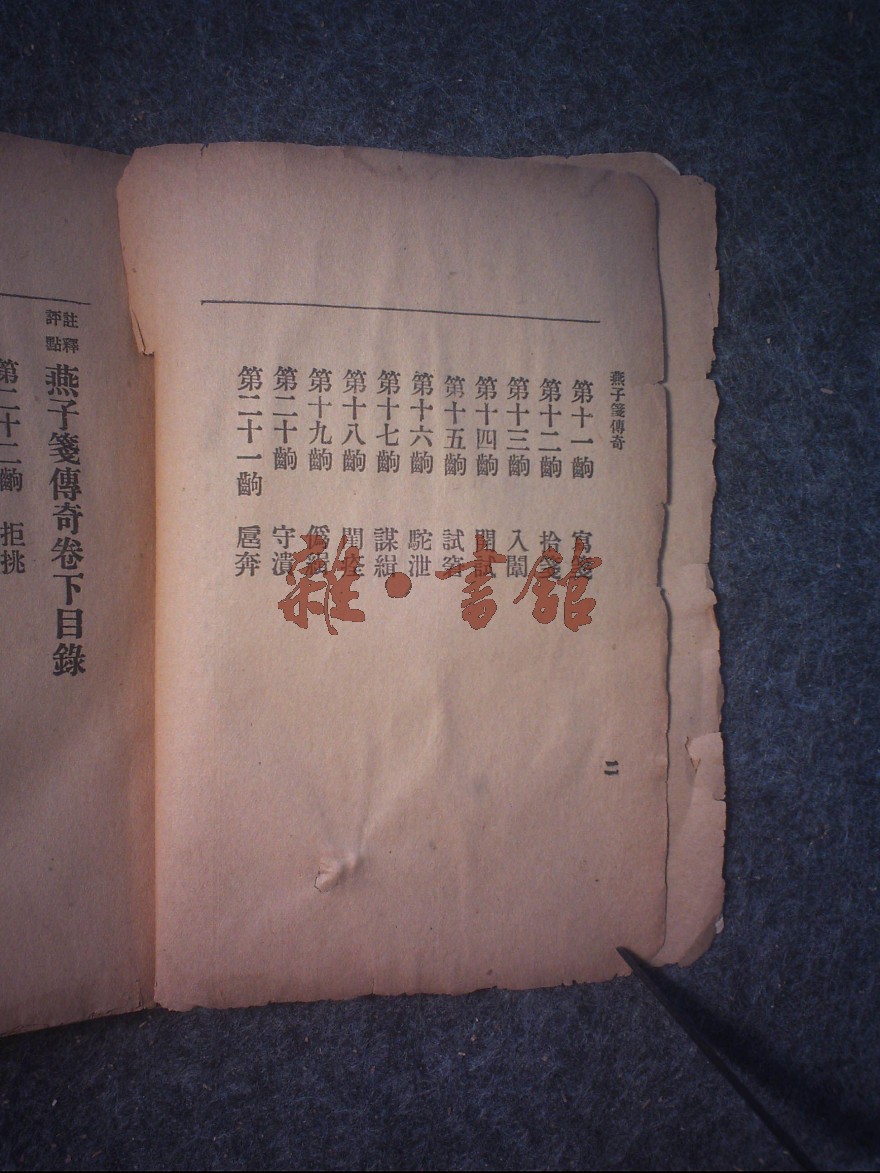 燕子箋傳奇
第十一齣 寫箋
第十二齣 拾箋
第十三齣 入闈
第十四齣 開試
第十五齣 試窘
第十六齣 駝泄
第十七齣 謀緝
第十八齣 閨痊
第十九齣 僞緝
第二十齣 守潰
第二十一齣 扈奔
二
註釋
評點
燕子箋傳奇卷下目錄
第二十二齣 拒挑
雜·書館